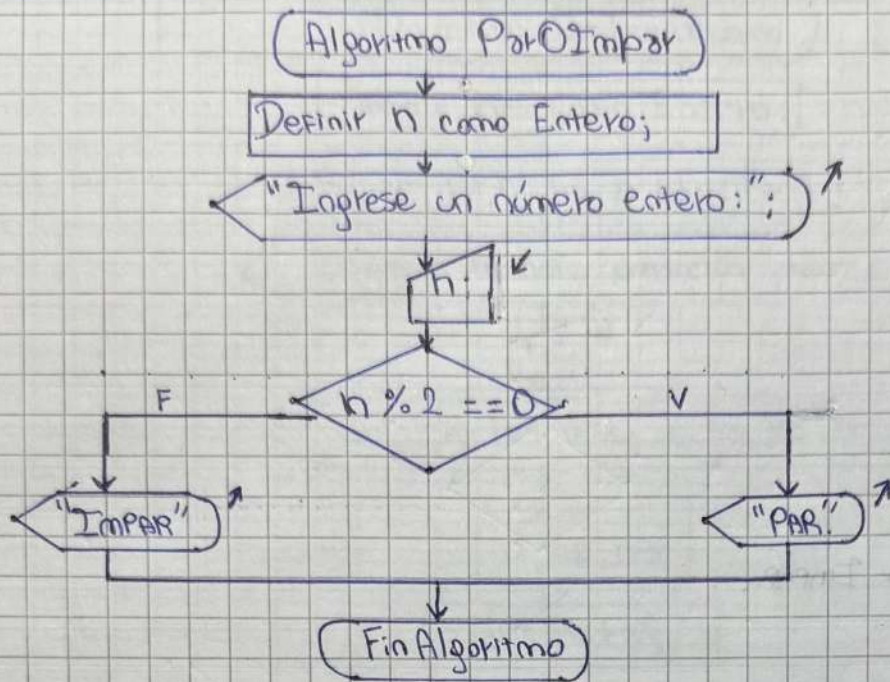 Algoritmo ParOImpar
Definir n como Entero;
"Ingrese un número entero:";
n;
n % 2 == 0
F
V
"IMPAR"
"PAR"
FinAlgoritmo